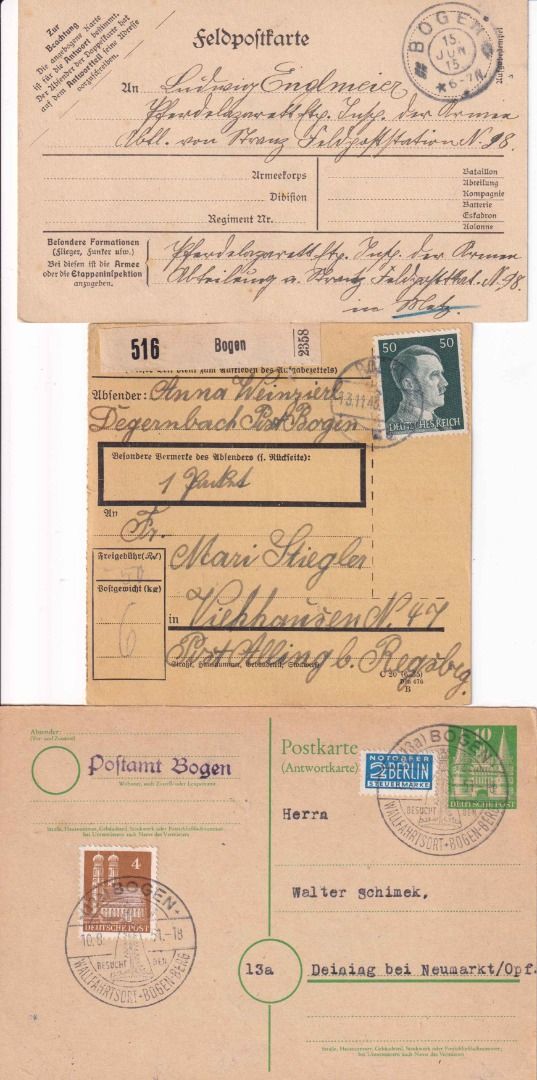 Zur
Beachtung
Die angebogene Karte
ist für die Antwort bestimmt.
Der Absender der Doppelkarte hat
auf dem Antwortteil seine Adresse
vorzuschreiben.
Feldpostkarte
BOGEN
15.
JUN
15
*6-7N.
An Ludwig Endlmeier
Pferdelazarett Etp. Insp. der Armee
Abtl. von Stranz Feldpoststation N. 98.
Armeekorps
Division
Regiment Nr.
Bataillon
Abteilung
Kompagnie
Batterie
Eskadron
Kolonne
Besondere Formationen
(Flieger, Funker usw.)
Bei diesen ist die Armee
oder die Etappeninspektion
anzugeben.
Pferdelazarett Etp. Insp. der Armee
Abteilung v. Strantz Feldpoststat. N. 98.
in Metz.
516 Bogen 2358
50 50
DEUTSCHES REICH
13.11.43
Absender: Anna Weinzierl
Degernbach Post Bogen
Besondere Vermerke des Absenders (s. Rückseite):
1 Packet
An
Fr.
Mari Stiegler
Freigebühr (Rℳ)
50
Postgewicht (kg)
6
in Viehhausen N. 47
Post Alling b. Regsbrg.
Straße, Hausnummer, Gebäudeteil, Stockwerk
Din 476
B
Absender:
Postamt Bogen
Wohnort, auch Zustell- oder Leitpostamt
Straße, Hausnummer, Gebäudeteil, Stockwerk oder Postschließfachnummer,
bei Untermietern auch Name des Vermieters
Postkarte
(Antwortkarte)
NOTOPFER
2 BERLIN
STEUERMARKE
10
DEUTSCHE POST
(13a) BOGEN
BESUCHT DEN
WALLFAHRTSORT + BOGEN-BERG
Herrn
Walter Schimek,
4
DEUTSCHE POST
BOGEN
10.8. 51.-18
BESUCHT DEN
WALLFAHRTSORT + BOGEN-BERG
13a Deining bei Neumarkt/Opf.
Straße, Hausnummer, Gebäudeteil, Stockwerk oder Postschließfachnummer,
bei Untermietern auch Name des Vermieters